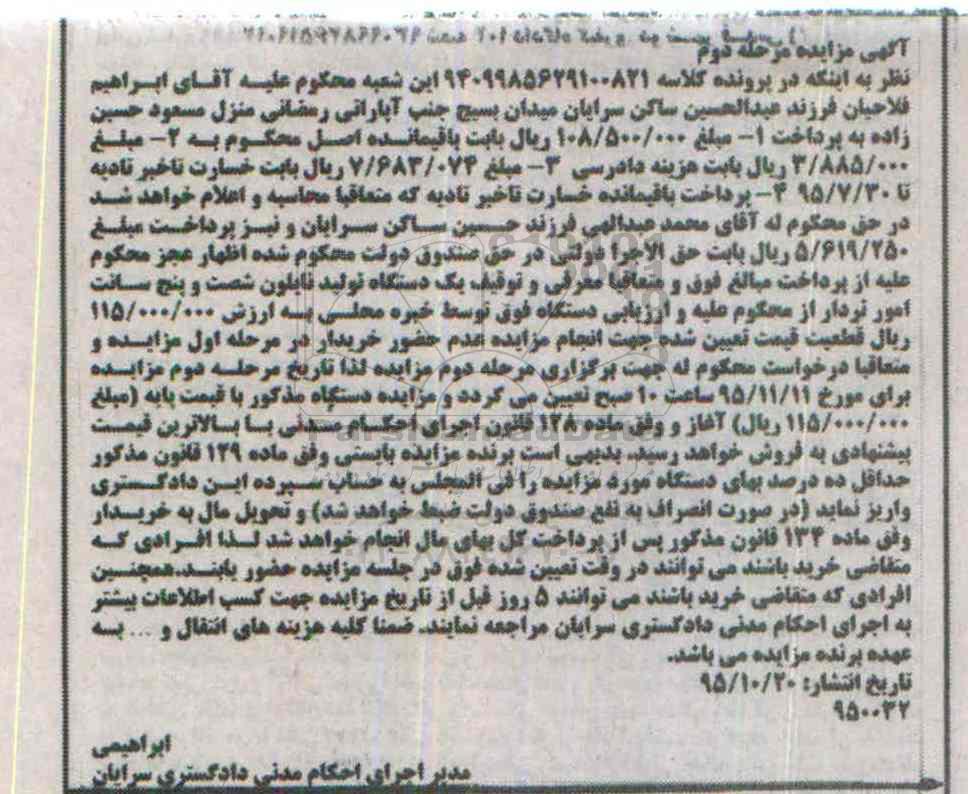 آگهی مزایده مرحله دوم
نظر به اینکه در پرونده کلاسه ۹۴۰۹۹۸۵۶۲۹۱۰۰۸۲۱ این شعبه محکوم علیه آقای ابراهیم
فلاحیان فرزند عبدالحسین ساکن سرایان میدان بسیج جنب آپاراتی رمضانی منزل مسعود حسین
زاده به پرداخت ۱- مبلغ ۱۰۸/۵۰۰/۰۰۰ ریال بابت باقیمانده اصل محکوم به ۲- مبلغ
۳/۸۸۵/۰۰۰ ریال بابت هزینه دادرسی ۳- مبلغ ۷/۶۸۳/۰۷۴ ریال بابت خسارت تاخیر تادیه
تا ۹۵/۷/۳۰ ۴- پرداخت باقیمانده خسارت تاخیر تادیه که متعاقبا محاسبه و اعلام خواهد شد
در حق محکوم له آقای محمد عبدالهی فرزند حسین ساکن سرایان و نیز پرداخت مبلغ
۵/۶۱۹/۲۵۰ ریال بابت حق الاجرا دولتی در حق صندوق دولت محکوم شده اظهار عجز محکوم
علیه از پرداخت مبالغ فوق و متعاقبا معرفی و توقیف یک دستگاه تولید نایلون شصت و پنج سانت
امور نردار از محکوم علیه و ارزیابی دستگاه فوق توسط خبره محلی به ارزش ۱۱۵/۰۰۰/۰۰۰
ریال قطعیت قیمت تعیین شده جهت انجام مزایده عدم حضور خریدار در مرحله اول مزایده و
متعاقبا درخواست محکوم له جهت برگزاری مرحله دوم مزایده لذا تاریخ مرحله دوم مزایده
برای مورخ ۹۵/۱۱/۱۱ ساعت ۱۰ صبح تعیین می گردد و مزایده دستگاه مذکور با قیمت پایه (مبلغ
۱۱۵/۰۰۰/۰۰۰ ریال) آغاز و وفق ماده ۱۲۸ قانون اجرای احکام مدنی با بالاترین قیمت
پیشنهادی به فروش خواهد رسید. بدیهی است برنده مزایده بایستی وفق ماده ۱۲۹ قانون مذکور
حداقل ده درصد بهای دستگاه مورد مزایده را فی المجلس به حساب سپرده این دادگستری
واریز نماید (در صورت انصراف به نفع صندوق دولت ضبط خواهد شد) و تحویل مال به خریدار
وفق ماده ۱۳۴ قانون مذکور پس از پرداخت کل بهای مال انجام خواهد شد لذا افرادی که
متقاضی خرید باشند می توانند در وقت تعیین شده فوق در جلسه مزایده حضور یابند.همچنین
افرادی که متقاضی خرید باشند می توانند ۵ روز قبل از تاریخ مزایده جهت کسب اطلاعات بیشتر
به اجرای احکام مدنی دادگستری سرایان مراجعه نمایند. ضمنا کلیه هزینه های انتقال و ... به
عهده برنده مزایده می باشد.
تاریخ انتشار: ۹۵/۱۰/۲۰
۹۵۰۰۳۲
ابراهیمی
مدیر اجرای احکام مدنی دادگستری سرایان